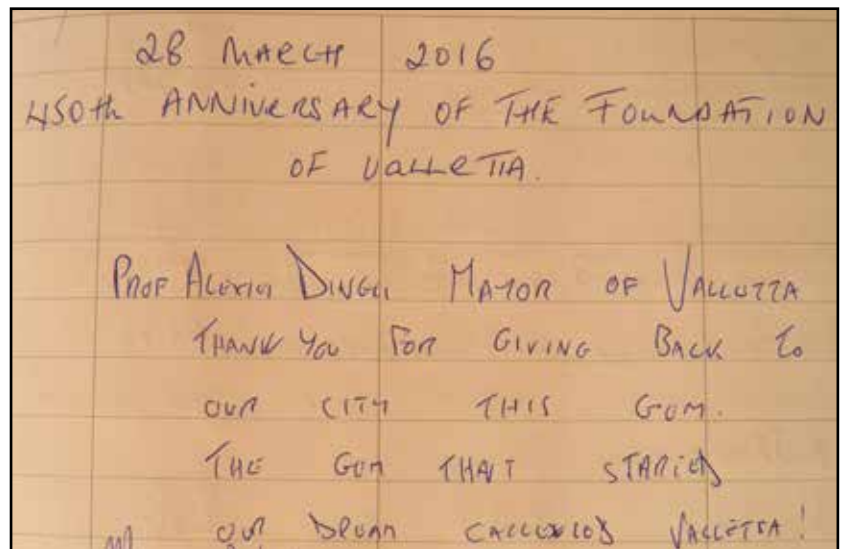 28 MARCH 2016
450th ANNIVERSARY OF THE FOUNDATION
OF VALLETTA.
PROF ALEXIEI DINGLI MAYOR OF VALLETTA
THANK YOU FOR GIVING BACK TO
OUR CITY THIS GEM.
THE GEM THAT STARTED
OUR DREAM CALLED VALLETTA!